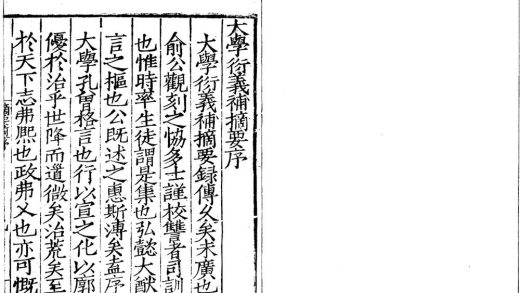 大學衍義補摘要序
大學衍義補摘要録傳久矣未廣也
俞公觀刻之恊多士謹校讐者司訓
也惟時率生徒謂是集也弘懿大猷
言之樞也公既述之惠斯溥矣盍序
大學孔曽格言也行以宣之化以廓
優於治乎世降而道微矣治荒矣至
於天下志弗熙也政弗乂也亦可慨